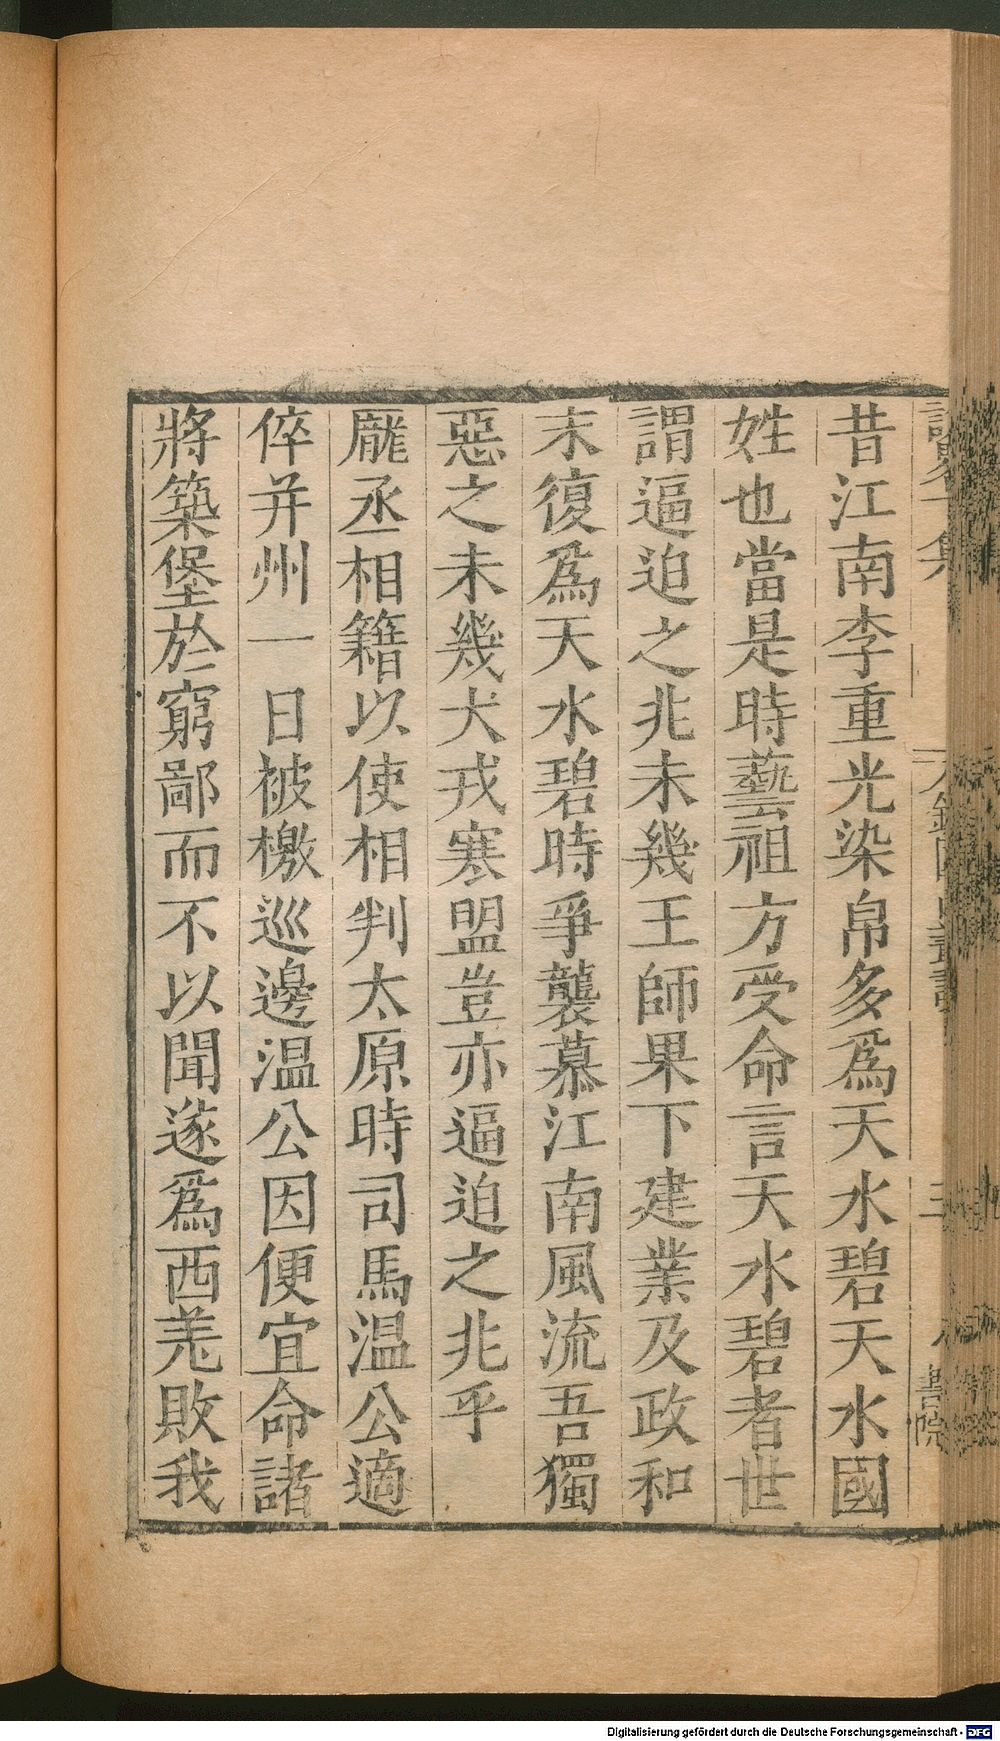 昔江南李重光染帛多爲天水碧天水國
姓也當是時藝祖方受命言天水碧者世
謂逼迫之兆未幾王師果下建業及政和
末復爲天水碧時爭襲慕江南風流吾獨
惡之未幾犬戎寒盟豈亦逼迫之兆乎
龎丞相籍以使相判太原時司馬温公適
倅并州一日被檄巡邊温公因便宜命諸
將築堡於窮鄙而不以聞遂爲西羗敗我
書院
Digitalisierung gefördert durch die Deutsche Forschungsgemeinschaft - DFG